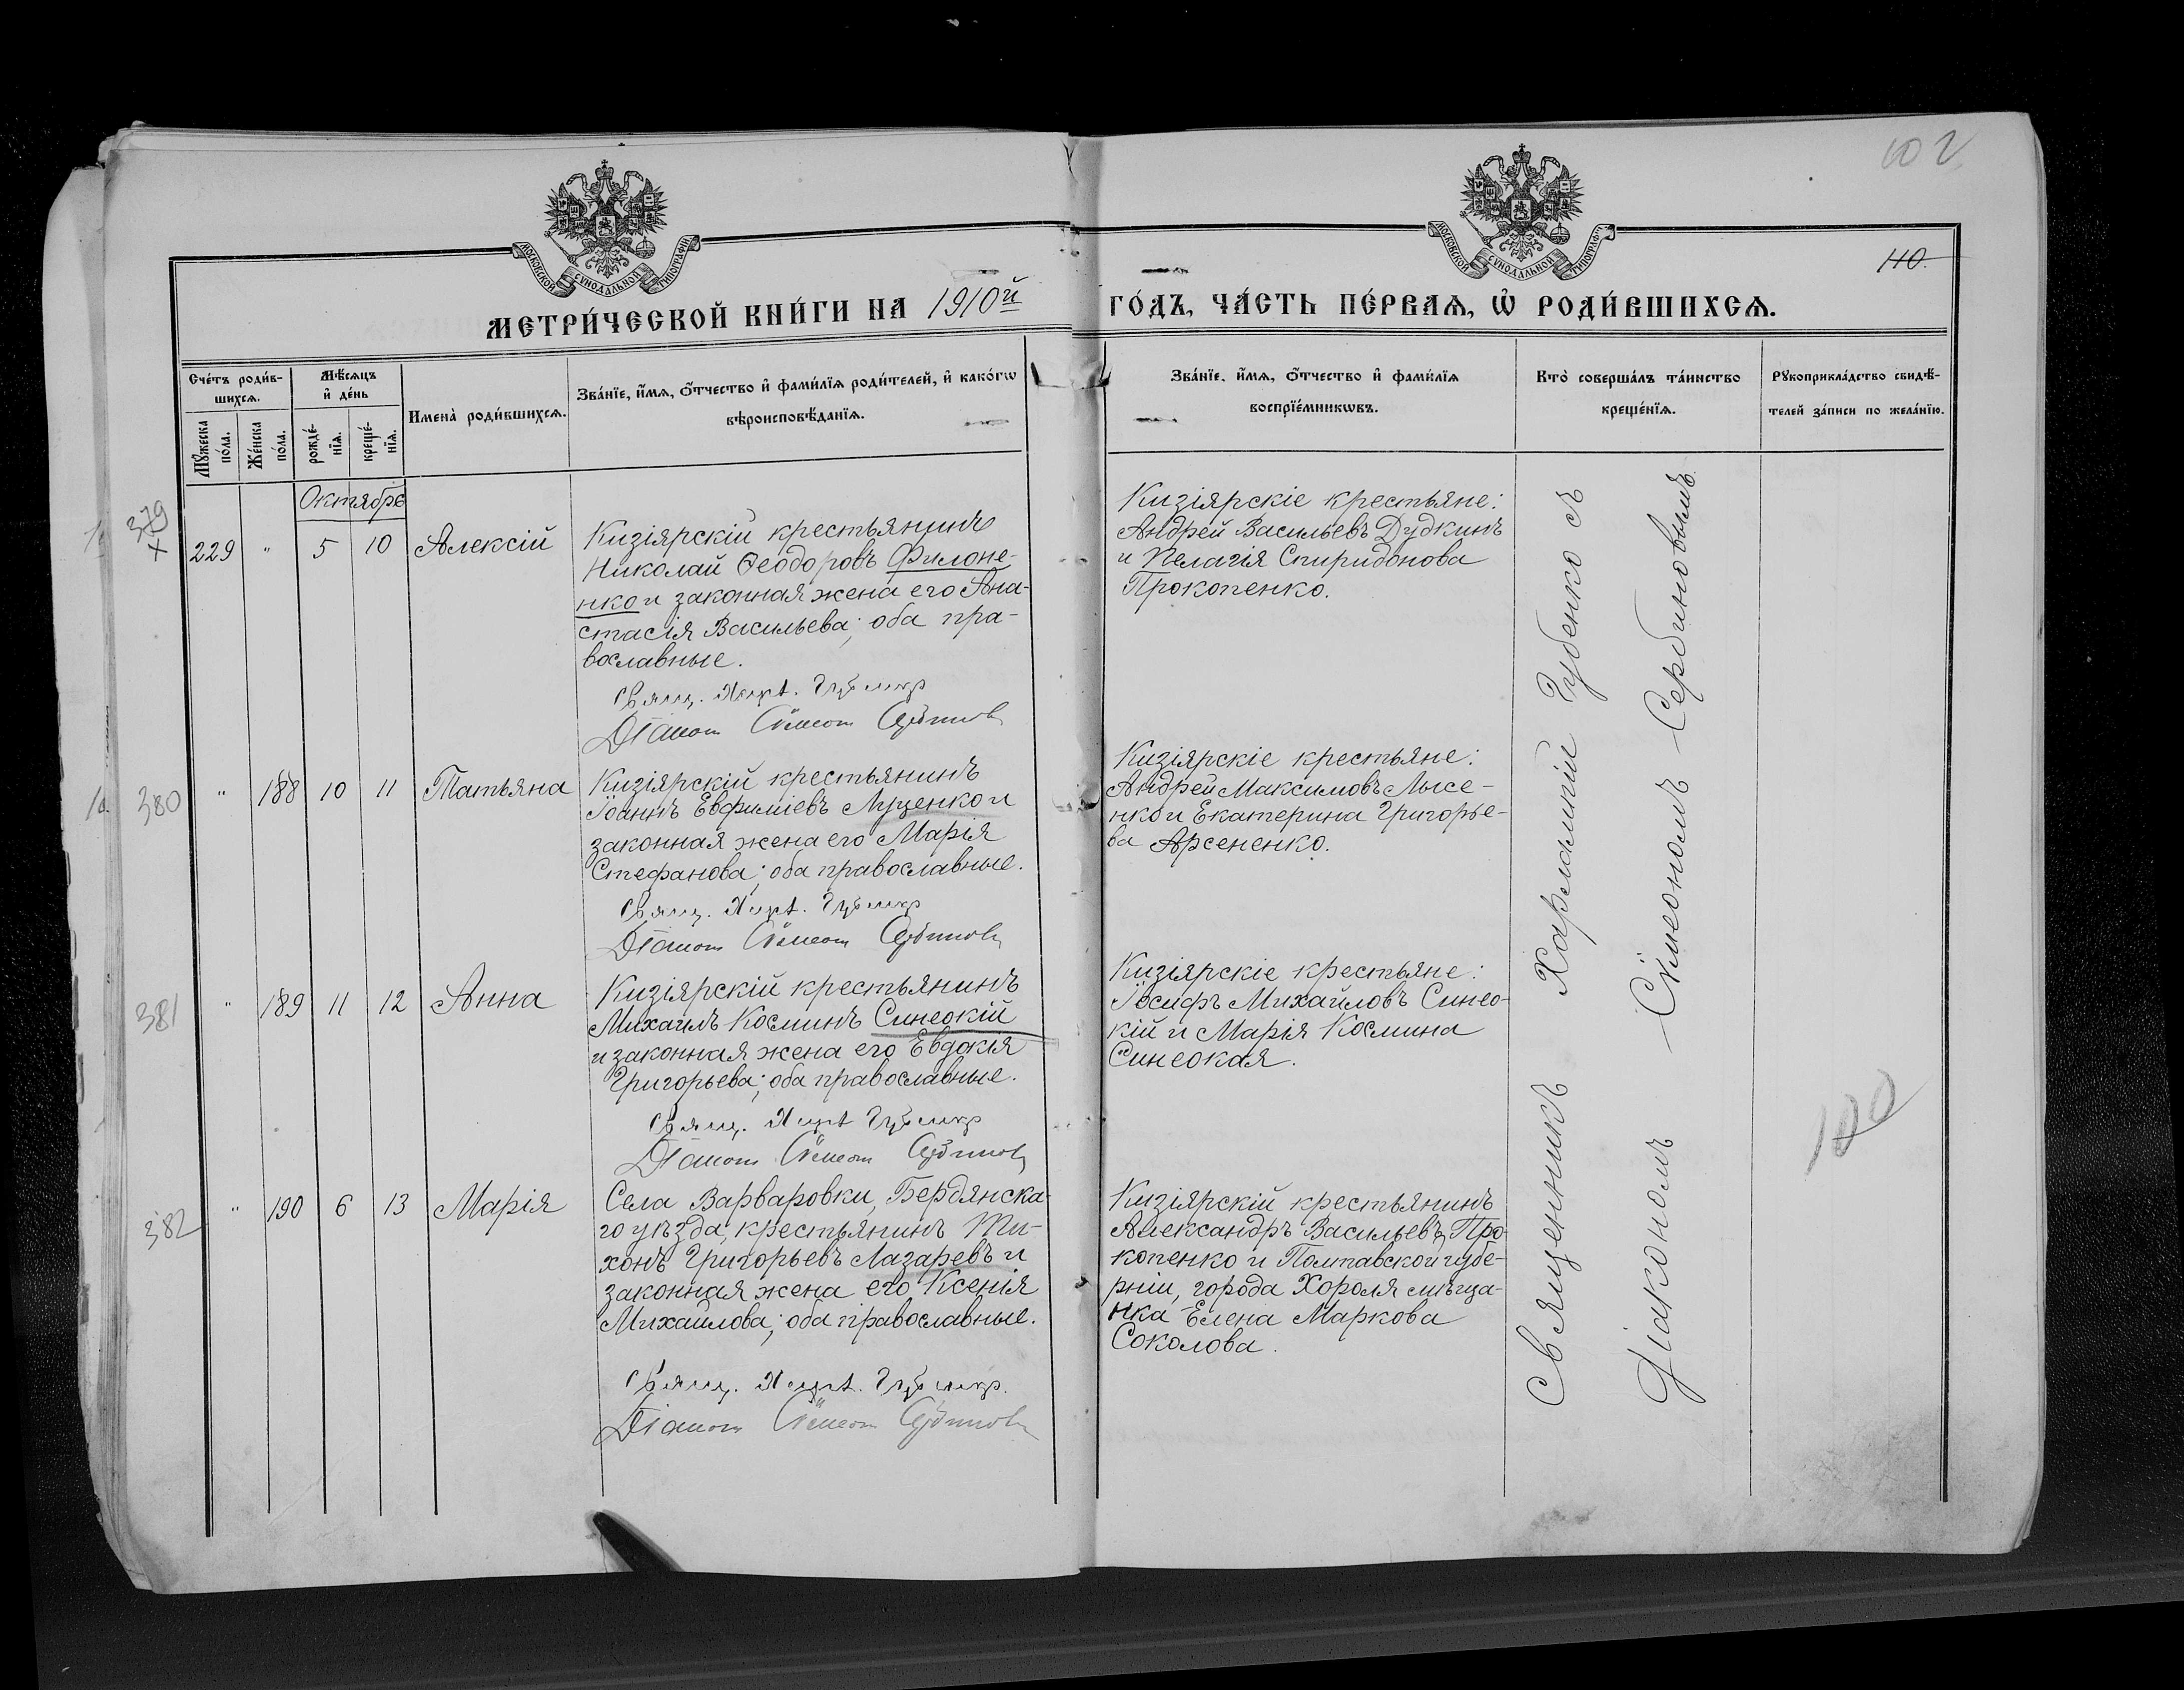 102
110.
МОСКОВСКОЙ СѴНОДАЛЬНОЙ ТИПОГРАФІИ
МОСКОВСКОЙ СѴНОДАЛЬНОЙ ТИПОГРАФІИ
МЕТРИ́ЧЕСКОЙ КНИ́ГИ НА 1910й ГО́ДЪ, ЧА́СТЬ ПЕ́РВАѦ, Ѡ҆ РОДИ́ВШИХСѦ.
Сче́тъ роди́в-
шихсѧ.
Мꙋ́жеска по́ла.
Же́нска по́ла.
Мѣ́сѧцъ
и҆ де́нь
рожде́-
нїѧ.
креще́-
нїѧ.
Имена̀ роди́вшихсѧ.
Зва́нїе, и҆́мѧ, ѻ҆́тчество и҆ фами́лїѧ роди́телей, и҆ како́гѡ
вѣроисповѣ́данїѧ.
Зва́нїе, и҆́мѧ, ѻ҆́тчество и҆ фами́лїѧ
воспрїе́мникѡвъ.
Кто̀ соверша́лъ та́инство
креще́нїѧ.
Рꙋкоприкла́дство свидѣ́-
телей за́писи по жела́нїю.
Октябрь
379
×
229 " 5 10 Алексій
Кизіярскій крестьянинъ
Николай Ѳеодоровъ Филоне-
нко и законная жена его Ана-
стасія Васильева; оба пра-
вославные.
Свящ. Харл. Губенко
Діаконъ Сѷмеонъ Сербиновъ
Кизіярскіе крестьяне:
Андрей Васильевъ Дудкинъ
и Пелагія Спиридонова
Прокопенко.
380 " 188 10 11 Татьяна
Кизіярскій крестьянинъ
Іоаннъ Евфиміевъ Луценко и
законная жена его Марія
Стефанова; оба православные.
Свящ. Харл. Губенко
Діаконъ Сѷмеонъ Сербиновъ
Кизіярскіе крестьяне:
Андрей Максимовъ Лысе-
нко и Екатерина Григорье-
ва Арсененко.
381 " 189 11 12 Анна
Кизіярскій крестьянинъ
Михаилъ Косминъ Синеокій
и законная жена его Евдокія
Григорьева; оба православные.
Свящ. Харл. Губенко
Діаконъ Сѷмеонъ Сербиновъ
Кизіярскіе крестьяне:
Іосифъ Михайловъ Синео-
кій и Марія Космина
Синеокая.
382 " 190 6 13 Марія
Села Варваровки, Бердянска-
го уѣзда, крестьянинъ Ти-
хонъ Григорьевъ Лазаревъ и
законная жена его Ксенія
Михайлова; оба православные.
Свящ. Харл. Губенко.
Діаконъ Сѷмеонъ Сербиновъ
Кизіярскій крестьянинъ
Александръ Васильевъ Про-
копенко и Полтавской губе-
рніи, города Хороля мѣща-
нка Елена Маркова
Соколова.
Священникъ Харлампій Губенко съ
Діакономъ Сѷмеономъ Сербиновымъ.
100